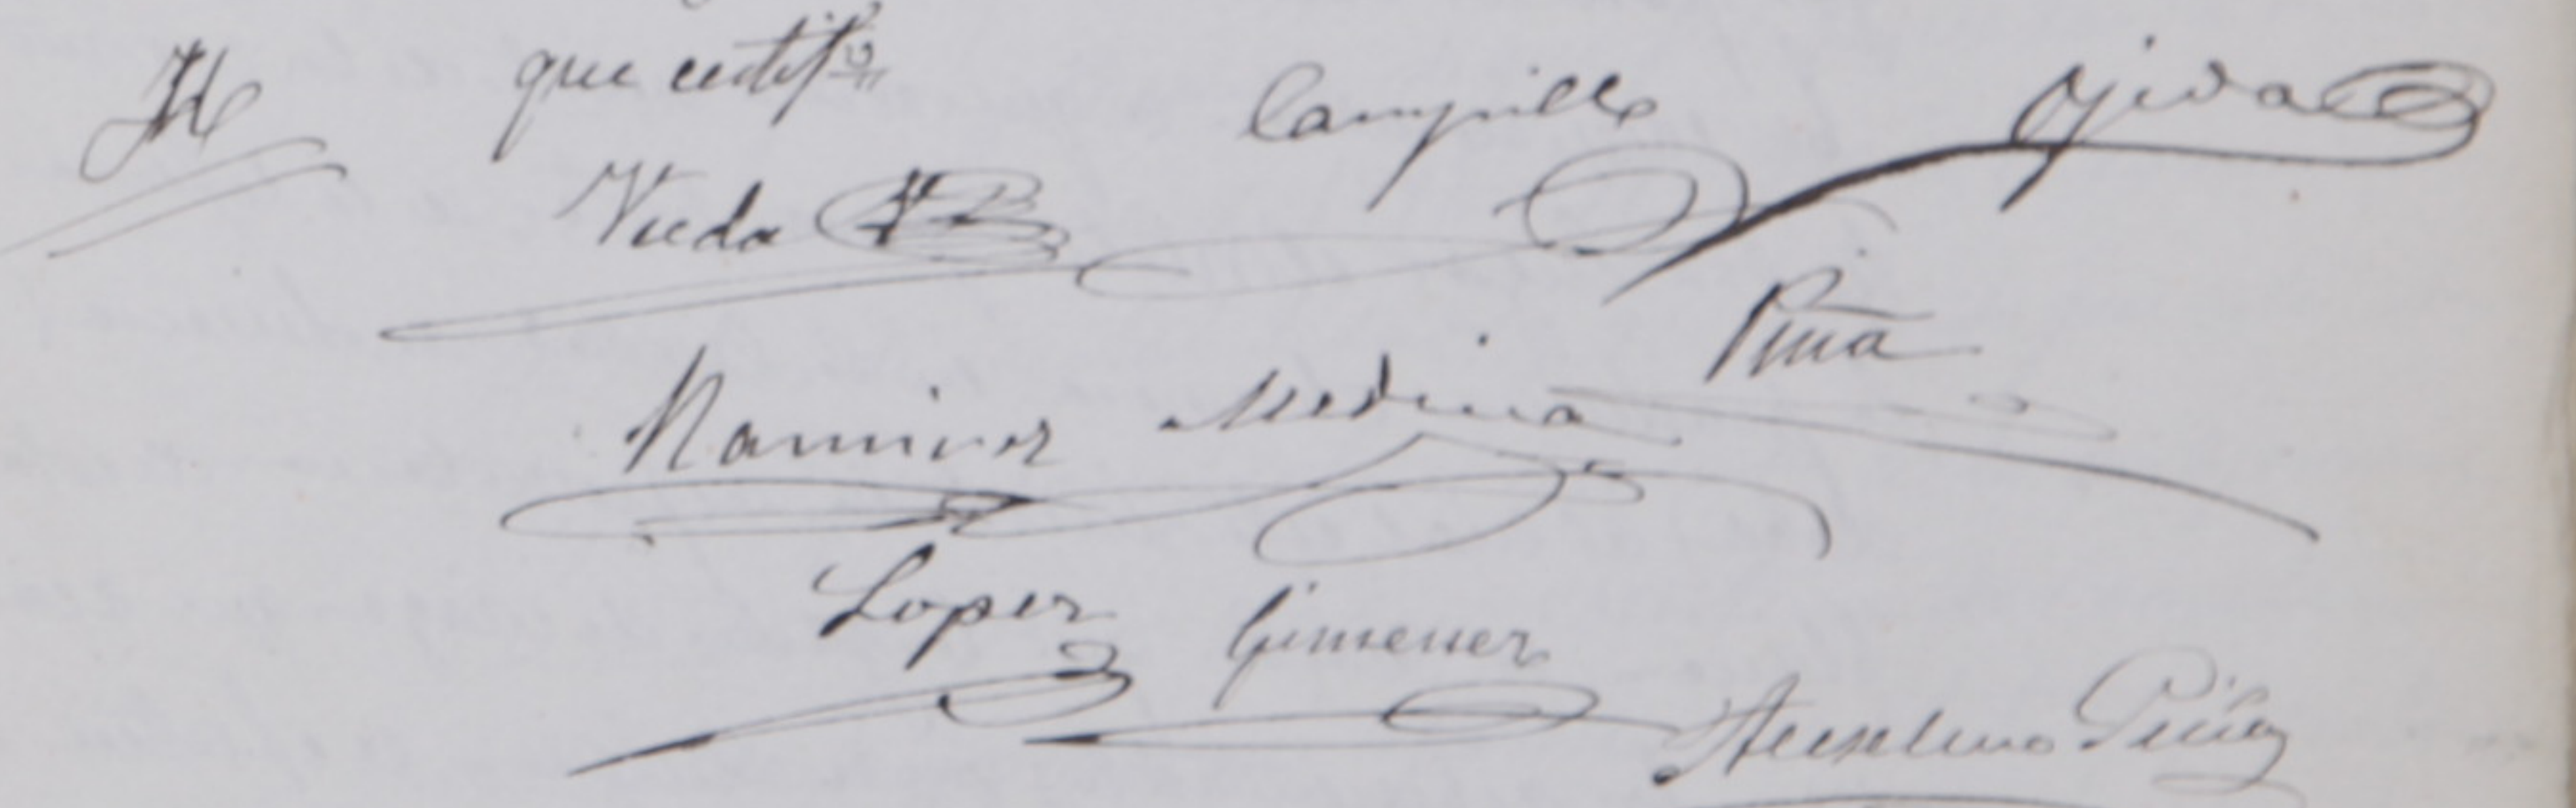 que certifº
Campillo Ojeda
Vieda
Piña
Ramirez Medina
Lopez Gimenez
Anselmo Piña